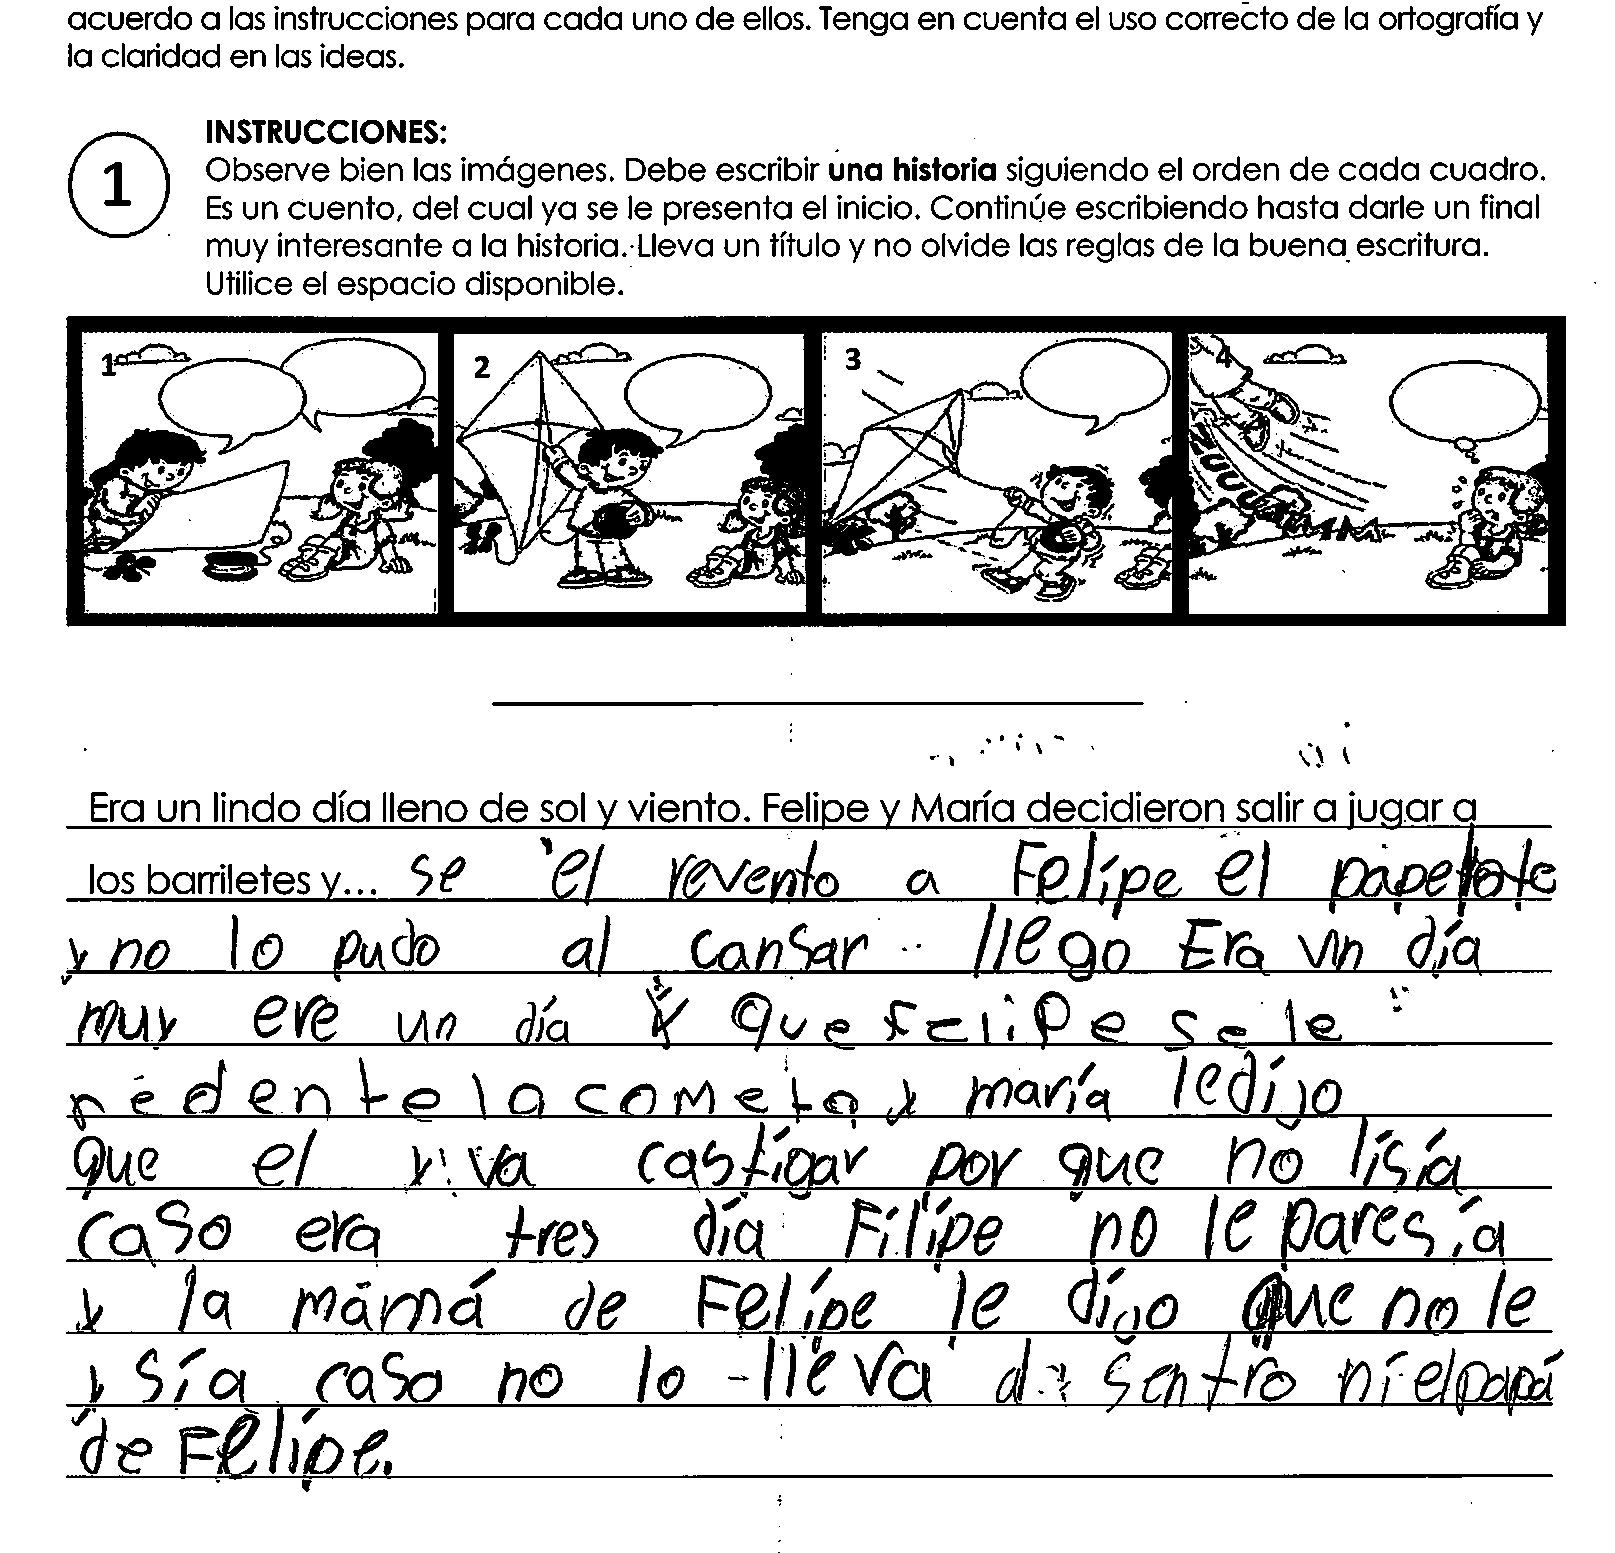 acuerdo a las instrucciones para cada uno de ellos. Tenga en cuenta el uso correcto de la ortografía y
la claridad en las ideas.
1
INSTRUCCIONES:
Observe bien las imágenes. Debe escribir una historia siguiendo el orden de cada cuadro.
Es un cuento, del cual ya se le presenta el inicio. Continúe escribiendo hasta darle un final
muy interesante a la historia. Lleva un título y no olvide las reglas de la buena escritura.
Utilice el espacio disponible.
1 2 3 4
Era un lindo día lleno de sol y viento. Felipe y María decidieron salir a jugar a
los barriletes y... se el revento a Felípe el papelote
y no lo pudo al cansar llego Era un día
muy ere un día y que felipe se le
la cometa y maría le díjo
que el castígar por que no
caso era tres día Filípe no le paresía
y la mámá de Felípe le díjo que no le
y sía caso no lo lleva sentro ní el papá
de Felípe.